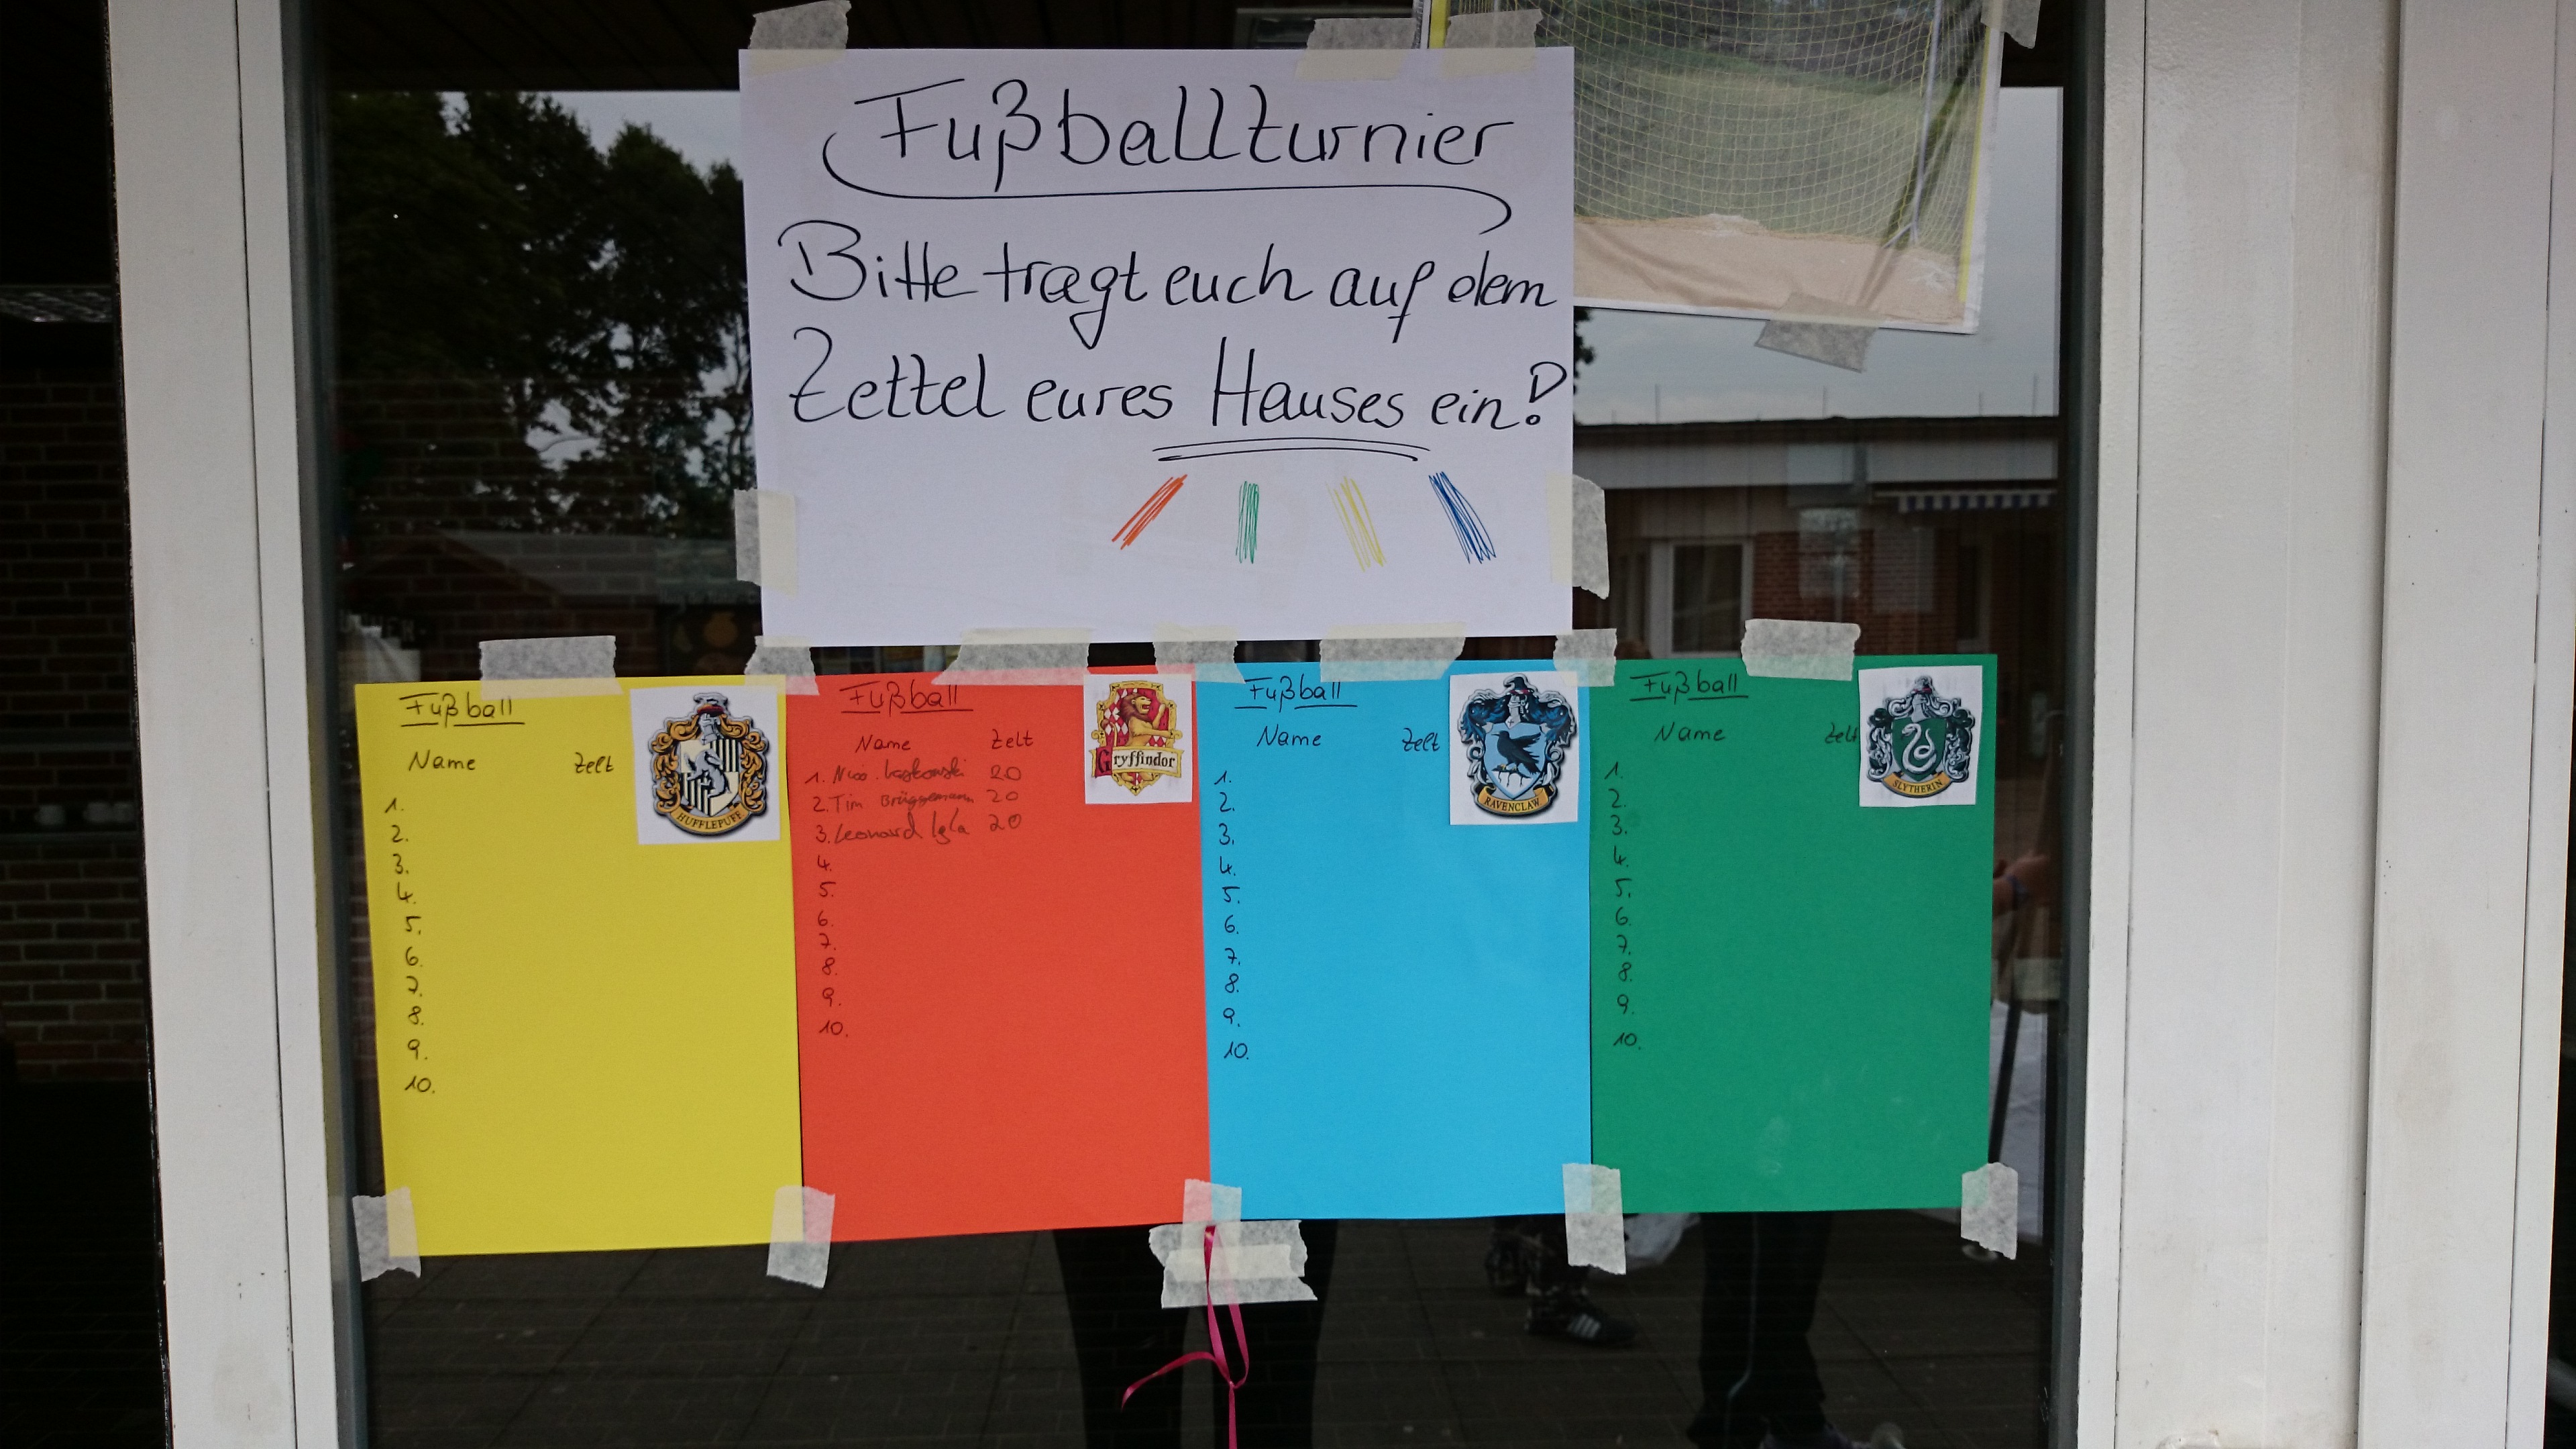 Fußballturnier
Bitte tragt euch auf dem
Zettel eures Hauses ein!
Fußball
Name Zelt
HUFFLEPUFF
1.
2.
3.
4.
5.
6.
7.
8.
9.
10.
Fußball
Name Zelt
Gryffindor
1. 20
2. Tim Brüggemann 20
3. Leonard 20
4.
5.
6.
7.
8.
9.
10.
Fußball
Name Zelt
RAVENCLAW
1.
2.
3.
4.
5.
6.
7.
8.
9.
10.
Fußball
Name Zelt
SLYTHERIN
1.
2.
3.
4.
5.
6.
7.
8.
9.
10.